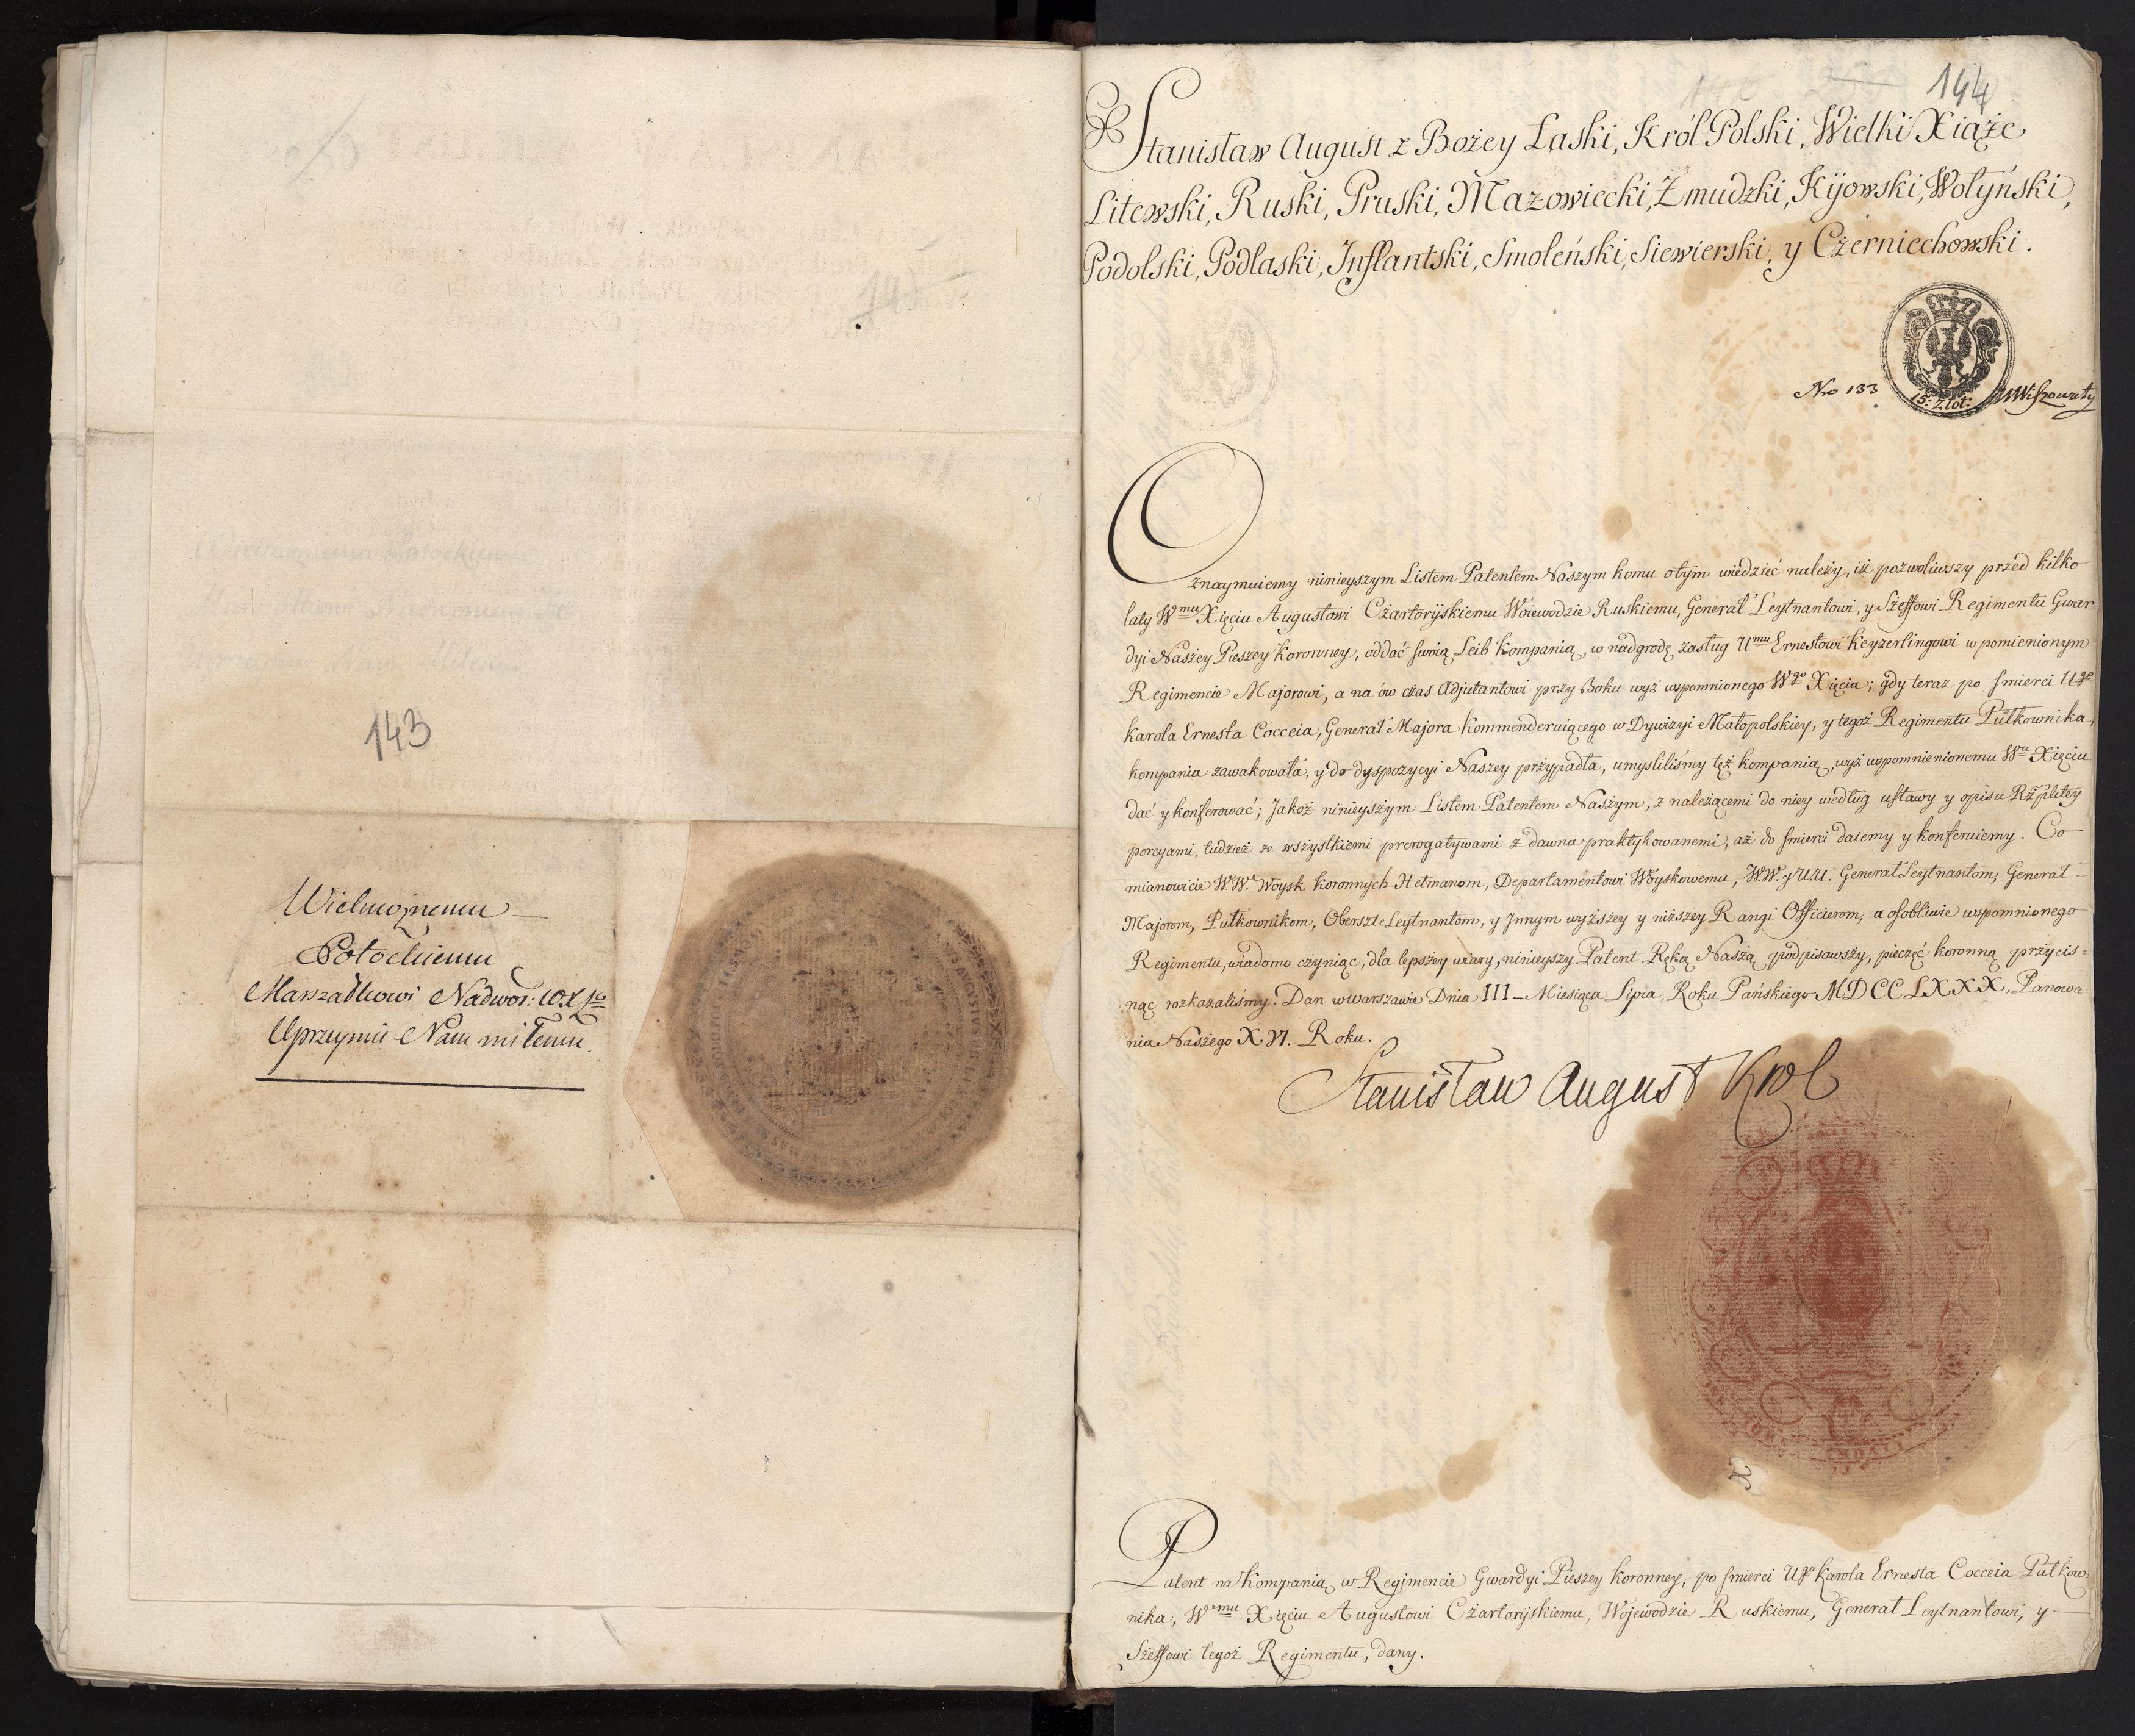 143
Wielmożnemu
Potockiemu
Marszałkowi Nadwor: WXLo
Uprzymie Nam miłemu.
144
Stanisław August z Bożey Łaski, Król Polski, Wielki Xiąże
Litewski, Ruski, Pruski, Mazowiecki, Żmudzki, Kijowski, Wołyński,
Podolski, Podlaski, Inflantski, Smoleński, Siewierski, y Czerniechowski.
Nro 133
15: Złot:
Oznaymuiemy ninieyszym Listem Patentem Naszym komu otym wiedzieć należy, iż pozwoliwszy przed kilko
laty Wmu Xięciu Augustowi Czartoryskiemu Woiewodzie Ruskiemu, Generał Leytnantowi, y Szeffowi Regimentu Gwar
dyi Naszey Pieszey Koronney, oddać swoią Leib Kompanią, w nadgrodę zasług Umu Ernestowi Keyzerlingowi w pomienionym
Regimencie Majorowi, a na ów czas Adjutantowi przy Boku wyż wspomnionego Wgo Xięcia; gdy teraz po smierci Ugo
Karola Ernesta Cocceia, Generał Majora kommenderuiącego w Dywizyi Małopolskiey, y tegoż Regimentu Pułkownika,
kompania zawakowała, y do dyspozycyi Naszey przypadła, umyslilismy tęż kompanią, wyż wspomnienionemu Wu Xięciu
dać y konferować; Jakoż ninieyszym Listem Patentem Naszym, z należącemi do niey według ustawy y opisu Rzplitey
porcyami, tudzież ze wszystkiemi prerogatywami z dawna praktykowanemi, aż do smierci daiemy y konferuiemy. Co
mianowicie W.W. Woysk Koronnych Hetmanom, Departamentowi Woyskowemu, W.W. y U.U. Generał Leytnantom, Generał-
Majorom, Pułkownikom, Obersztleytnantom, y Innym wyższey y niższey Rangi Officierom, a osobliwie wspomnionego
Regimentu, wiadomo czyniąc, dla lepszey wiary, ninieyszy Patent Ręką Naszą podpisawszy, pieczęć koronną przycis=
nąc rozkazaliśmy. Dan w Warszawie Dnia III_ Miesiąca Lipca, Roku Pańskiego MDCCLXXX, Panowa
nia Naszego XVI. Roku.
Stanisław August Król
Patent na Kompanią w Regimencie Gwardyi Pieszey Koronney, po smierci Ugo Karola Ernesta Cocceia Pułkow
nika, Wmu Xięciu Augustowi Czartoryskiemu, Wojewodzie Ruskiemu, Generał Leytnantowi, y
Szeffowi tegoż Regimentu, dany.